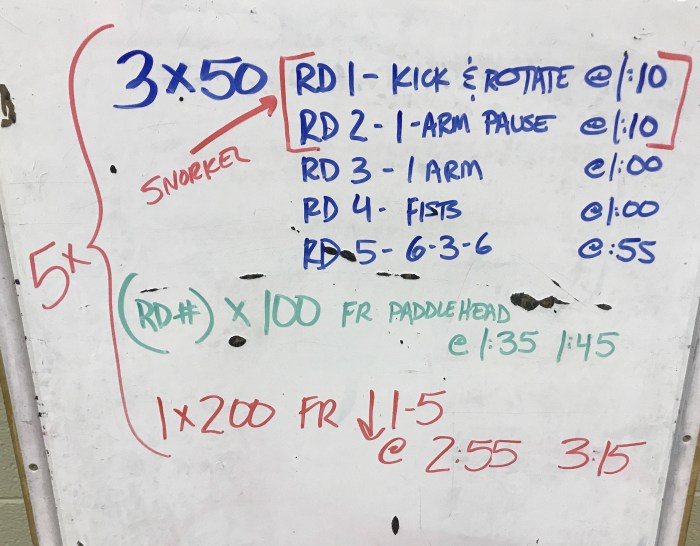 5x
3x50 RD 1 - KICK & ROTATE @ 1:10
RD 2 - 1-ARM PAUSE @ 1:10
SNORKEL
RD 3 - 1 ARM @ 1:00
RD 4 - FISTS @ 1:00
RD 5 - 6-3-6 @ :55
(RD #) x 100 FR PADDLEHEAD
@ 1:35 1:45
1x200 FR ↓ 1-5
@ 2:55 3:15